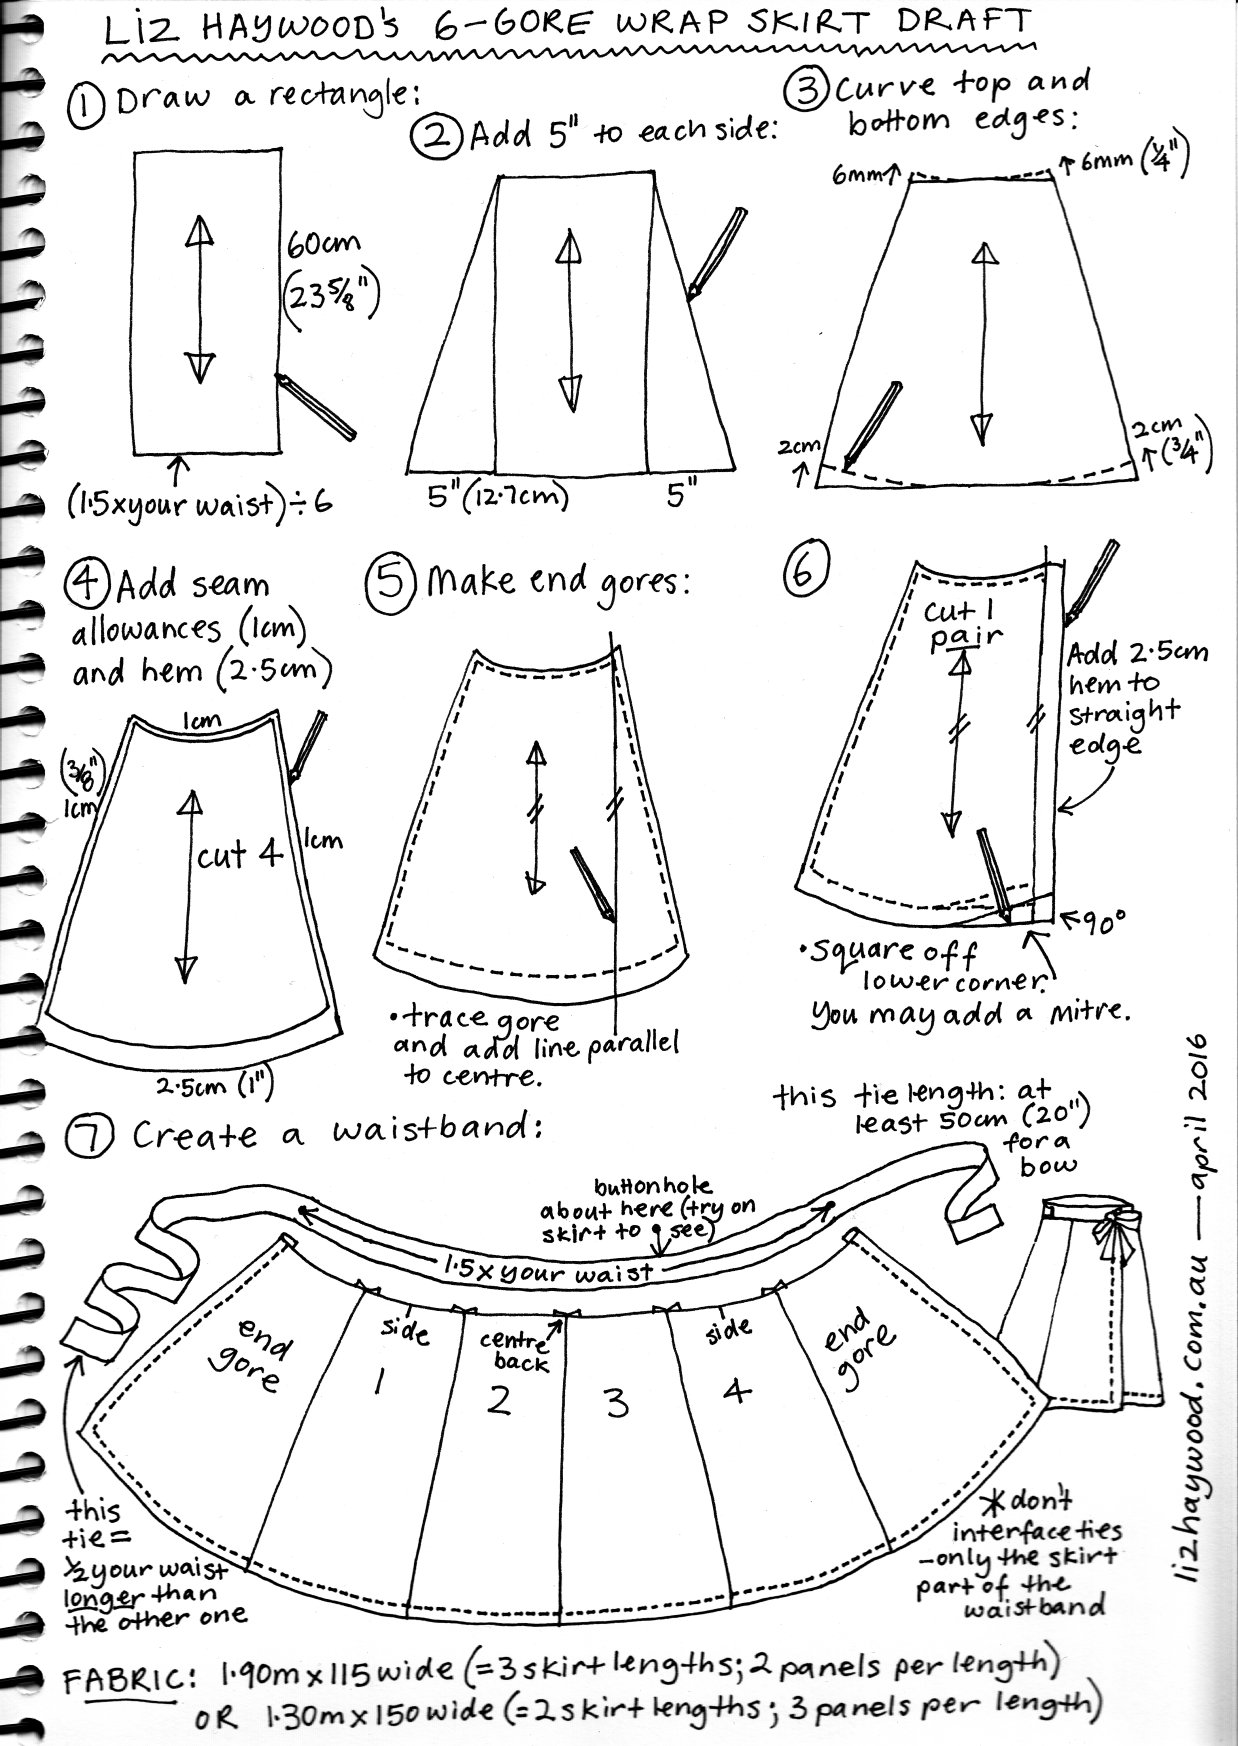 LIZ HAYWOOD'S 6-GORE WRAP SKIRT DRAFT
① Draw a rectangle:
60cm
(23 5/8")
(1·5xyour waist)÷6
② Add 5" to each side:
5" (12·7cm)
5"
③ Curve top and
bottom edges:
6mm
6mm (1/4")
2cm
2cm
(3/4")
④ Add seam
allowances (1cm)
and hem (2·5cm)
1cm
(3/8")
1cm
1cm
cut 4
2·5cm (1")
⑤ Make end gores:
•trace gore
and add line parallel
to centre.
⑥
cut 1
pair
Add 2·5cm
hem to
straight
edge
90°
•square off
lower corner.
You may add a mitre.
⑦ Create a waistband:
this tie length: at
least 50cm (20")
for a
bow
buttonhole
about here (try on
skirt to see)
1·5x your waist
end
gore
side
1
centre
back
2
3
side
4
end
gore
this
tie =
1/2 your waist
longer than
the other one
*don't
interface ties
-only the skirt
part of the
waistband
lizhaywood.com.au — april 2016
FABRIC: 1·90m x 115 wide (=3 skirt lengths; 2 panels per length)
OR 1·30m x 150 wide (=2 skirt lengths; 3 panels per length)